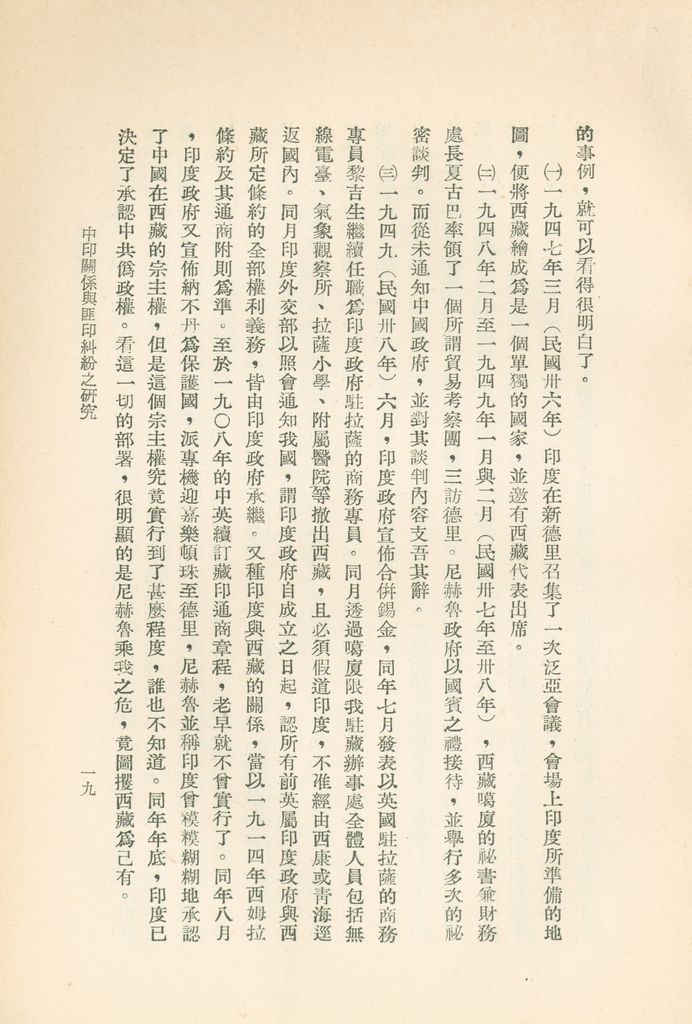 的事例，就可以看得很明白了。
㈠一九四七年三月（民國卅六年）印度在新德里召集了一次泛亞會議，會場上印度所準備的地
圖，便將西藏繪成爲是一個單獨的國家，並邀有西藏代表出席。
㈡一九四八年二月至一九四九年一月與二月（民國卅七年至卅八年），西藏噶廈的祕書兼財務
處長夏古巴率領了一個所謂貿易考察團，三訪德里。尼赫魯政府以國賓之禮接待，並舉行多次的祕
密談判。而從未通知中國政府，並對其談判內容支吾其辭。
㈢一九四九（民國卅八年）六月，印度政府宣佈合併錫金，同年七月發表以英國駐拉薩的商務
專員黎吉生繼續任職爲印度政府駐拉薩的商務專員。同月透過噶廈限我駐藏辦事處全體人員包括無
線電臺、氣象觀察所、拉薩小學、附屬醫院等撤出西藏，且必須假道印度，不准經由西康或青海逕
返國內。同月印度外交部以照會通知我國，謂印度政府自成立之日起，認所有前英屬印度政府與西
藏所定條約的全部權利義務，皆由印度政府承繼。又種印度與西藏的關係，當以一九一四年西姆拉
條約及其通商附則爲準。至於一九〇八年的中英續訂藏印通商章程，老早就不曾實行了。同年八月
，印度政府又宣佈納不丹爲保護國，派專機迎嘉樂頓珠至德里，尼赫魯並稱印度曾糢糢糊糊地承認
了中國在西藏的宗主權，但是這個宗主權究竟實行到了甚麼程度，誰也不知道。同年年底，印度已
決定了承認中共僞政權。看這一切的部署，很明顯的是尼赫魯乘我之危，竟圖攫西藏爲己有。
中印關係與匪印糾紛之研究
一九